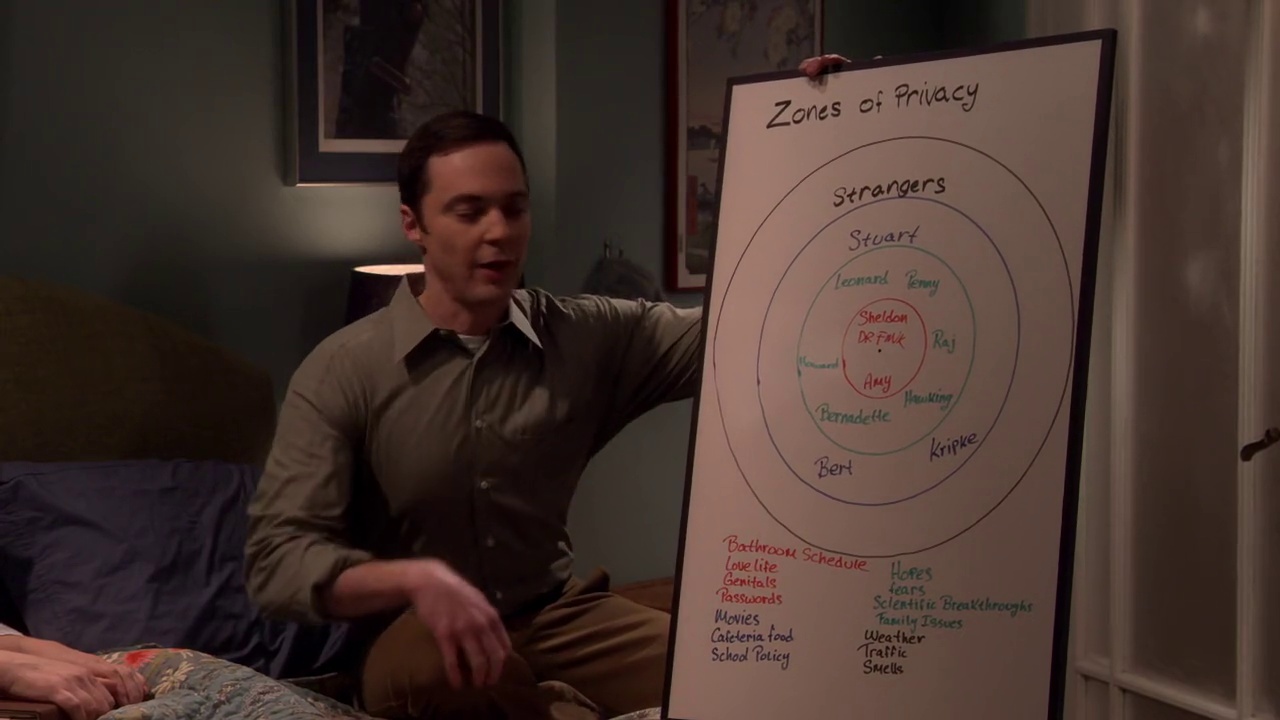 Zones of Privacy
Strangers
Stuart
Leonard Penny
Sheldon
DR.FMVK
Raj
Howard
Amy
Hawking
Bernadette
Kripke
Bert
Bathroom Schedule
Love life
Genitals
Passwords
Movies
Cafeteria food
School Policy
Hopes
fears
Scientific Breakthroughs
Family Issues
Weather
Traffic
Smells